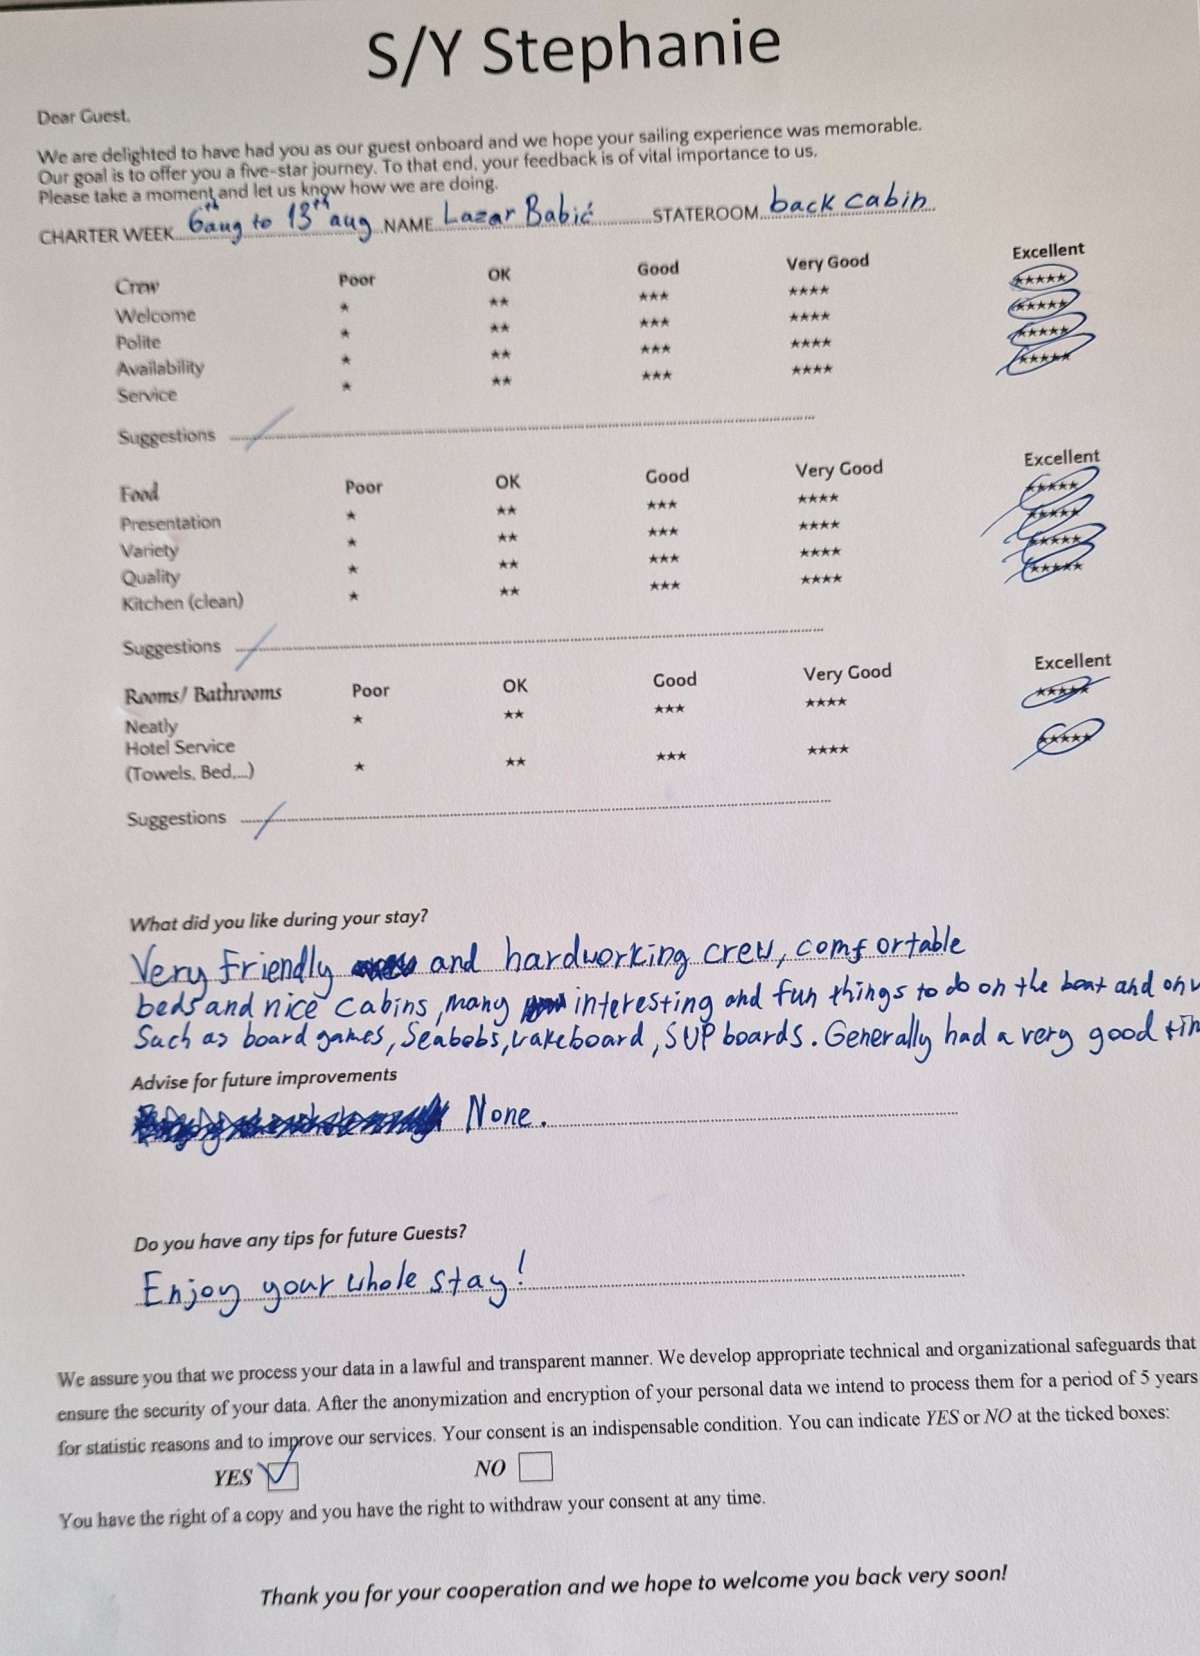 S/Y Stephanie
Dear Guest,
We are delighted to have had you as our guest onboard and we hope your sailing experience was memorable.
Our goal is to offer you a five-star journey. To that end, your feedback is of vital importance to us.
Please take a moment and let us know how we are doing.
CHARTER WEEK 6th aug to 13th aug NAME Lazar Babić STATEROOM back cabin
Crew Poor OK Good Very Good Excellent
Welcome ★ ★★ ★★★ ★★★★ ★★★★★
Polite ★ ★★ ★★★ ★★★★ ★★★★★
Availability ★ ★★ ★★★ ★★★★ ★★★★★
Service ★ ★★ ★★★ ★★★★ ★★★★★
Suggestions /
Food Poor OK Good Very Good Excellent
Presentation ★ ★★ ★★★ ★★★★ ★★★★★
Variety ★ ★★ ★★★ ★★★★ ★★★★★
Quality ★ ★★ ★★★ ★★★★ ★★★★★
Kitchen (clean) ★ ★★ ★★★ ★★★★ ★★★★★
Suggestions /
Rooms/ Bathrooms Poor OK Good Very Good Excellent
Neatly ★ ★★ ★★★ ★★★★ ★★★★★
Hotel Service
(Towels, Bed,...) ★ ★★ ★★★ ★★★★ ★★★★★
Suggestions /
What did you like during your stay?
Very Friendly and hardworking crew, comfortable
beds and nice cabins, many interesting and fun things to do on the boat and on
Such as board games, Seabobs, wakeboard, SUP boards. Generally had a very good
Advise for future improvements
None.
Do you have any tips for future Guests?
Enjoy your whole stay!
We assure you that we process your data in a lawful and transparent manner. We develop appropriate technical and organizational safeguards that
ensure the security of your data. After the anonymization and encryption of your personal data we intend to process them for a period of 5 years
for statistic reasons and to improve our services. Your consent is an indispensable condition. You can indicate YES or NO at the ticked boxes:
YES NO
You have the right of a copy and you have the right to withdraw your consent at any time.
Thank you for your cooperation and we hope to welcome you back very soon!